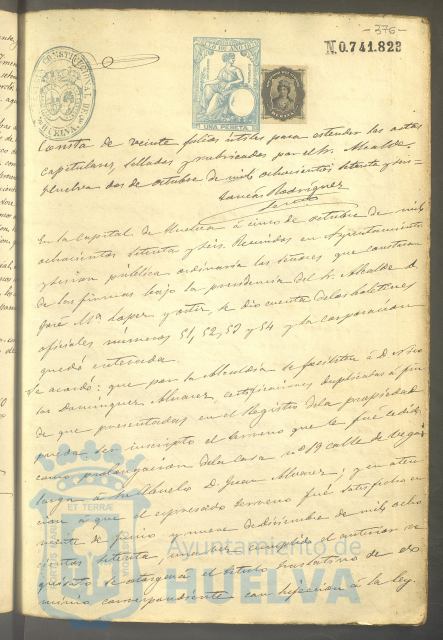 -376-
N.0.741.823
UNA PESETA
Consta de veinte folios útiles para estender las actas
capitulares, sellados y rubricados por el Sr. Alcalde.
Huelva dos de Octubre de mil ochocientos setenta y seis=
García Rodríguez
En la Capital de Huelva á cinco de Octubre de mil
ochocientos setenta y seis. Reunidos en Ayuntamiento
y sesion pública ordinaria los señores que constan
de las firmas bajo la presidencia del Sr. Alcalde D.
José Mª Lopez y se dio cuenta de los boletines
oficiales números 51, 52, 53 y 54 y la corporacion
quedó enterada.
Se acordó: que por la Alcaldia se facilite á D.
las Dominguez Alvarez, certificaciones duplicadas á fin
de que presentadas en el Registro de la propiedad
pueda ser inscripto el terreno que le fué cedido
como prolongacion de la casa nº 19 calle de Vega
larga á su Abuelo D. Juan Alvarez; y en aten
cion á que el expresado terreno fué satisfecho en
veinte de Junio y nueve de diciembre de mil ocho
cientos setenta, una vez cumplido el anterior re
quisito se otorgará el título traslativo de do
minio correspondiente con sujecion á la ley.
Ayuntamiento de
HUELVA